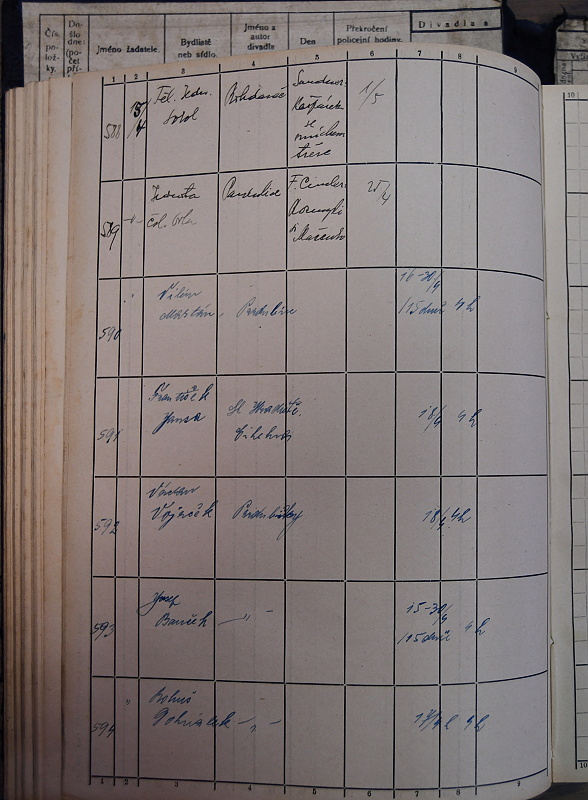 Čís.
po-
lož-
ky.
Do-
šlo
dne:
(po-
čet
pří-
Jméno žadatele.
Bydliště
neb sídlo.
Jméno a
autor
divadla
Den
Překročení
policejní hodiny.
Divadla a
1 2 3 4 5 6 7 8 9
588 15/4 Těl. Jedn. Bohdaneč 1/5
Sokol
Kašpárek
se
589 -"- Jednota Pardubice F. Cimler 25/4
čsl. Orla
590 " Vilém 16-30/4
Mastán, Pardubice /15 dnů 4 h
591 František
Jansa St. Hradiště. 18/4 4 h
592 Václav
Vojáček Pardubičky 18/4 4 h
593 Josef 15-30/4
Baněk -"- /15 dnů 4 h
594 " Bohuš
-"- 17/4 4 h
1 2 3 4 5 6 7 8 9
10
10